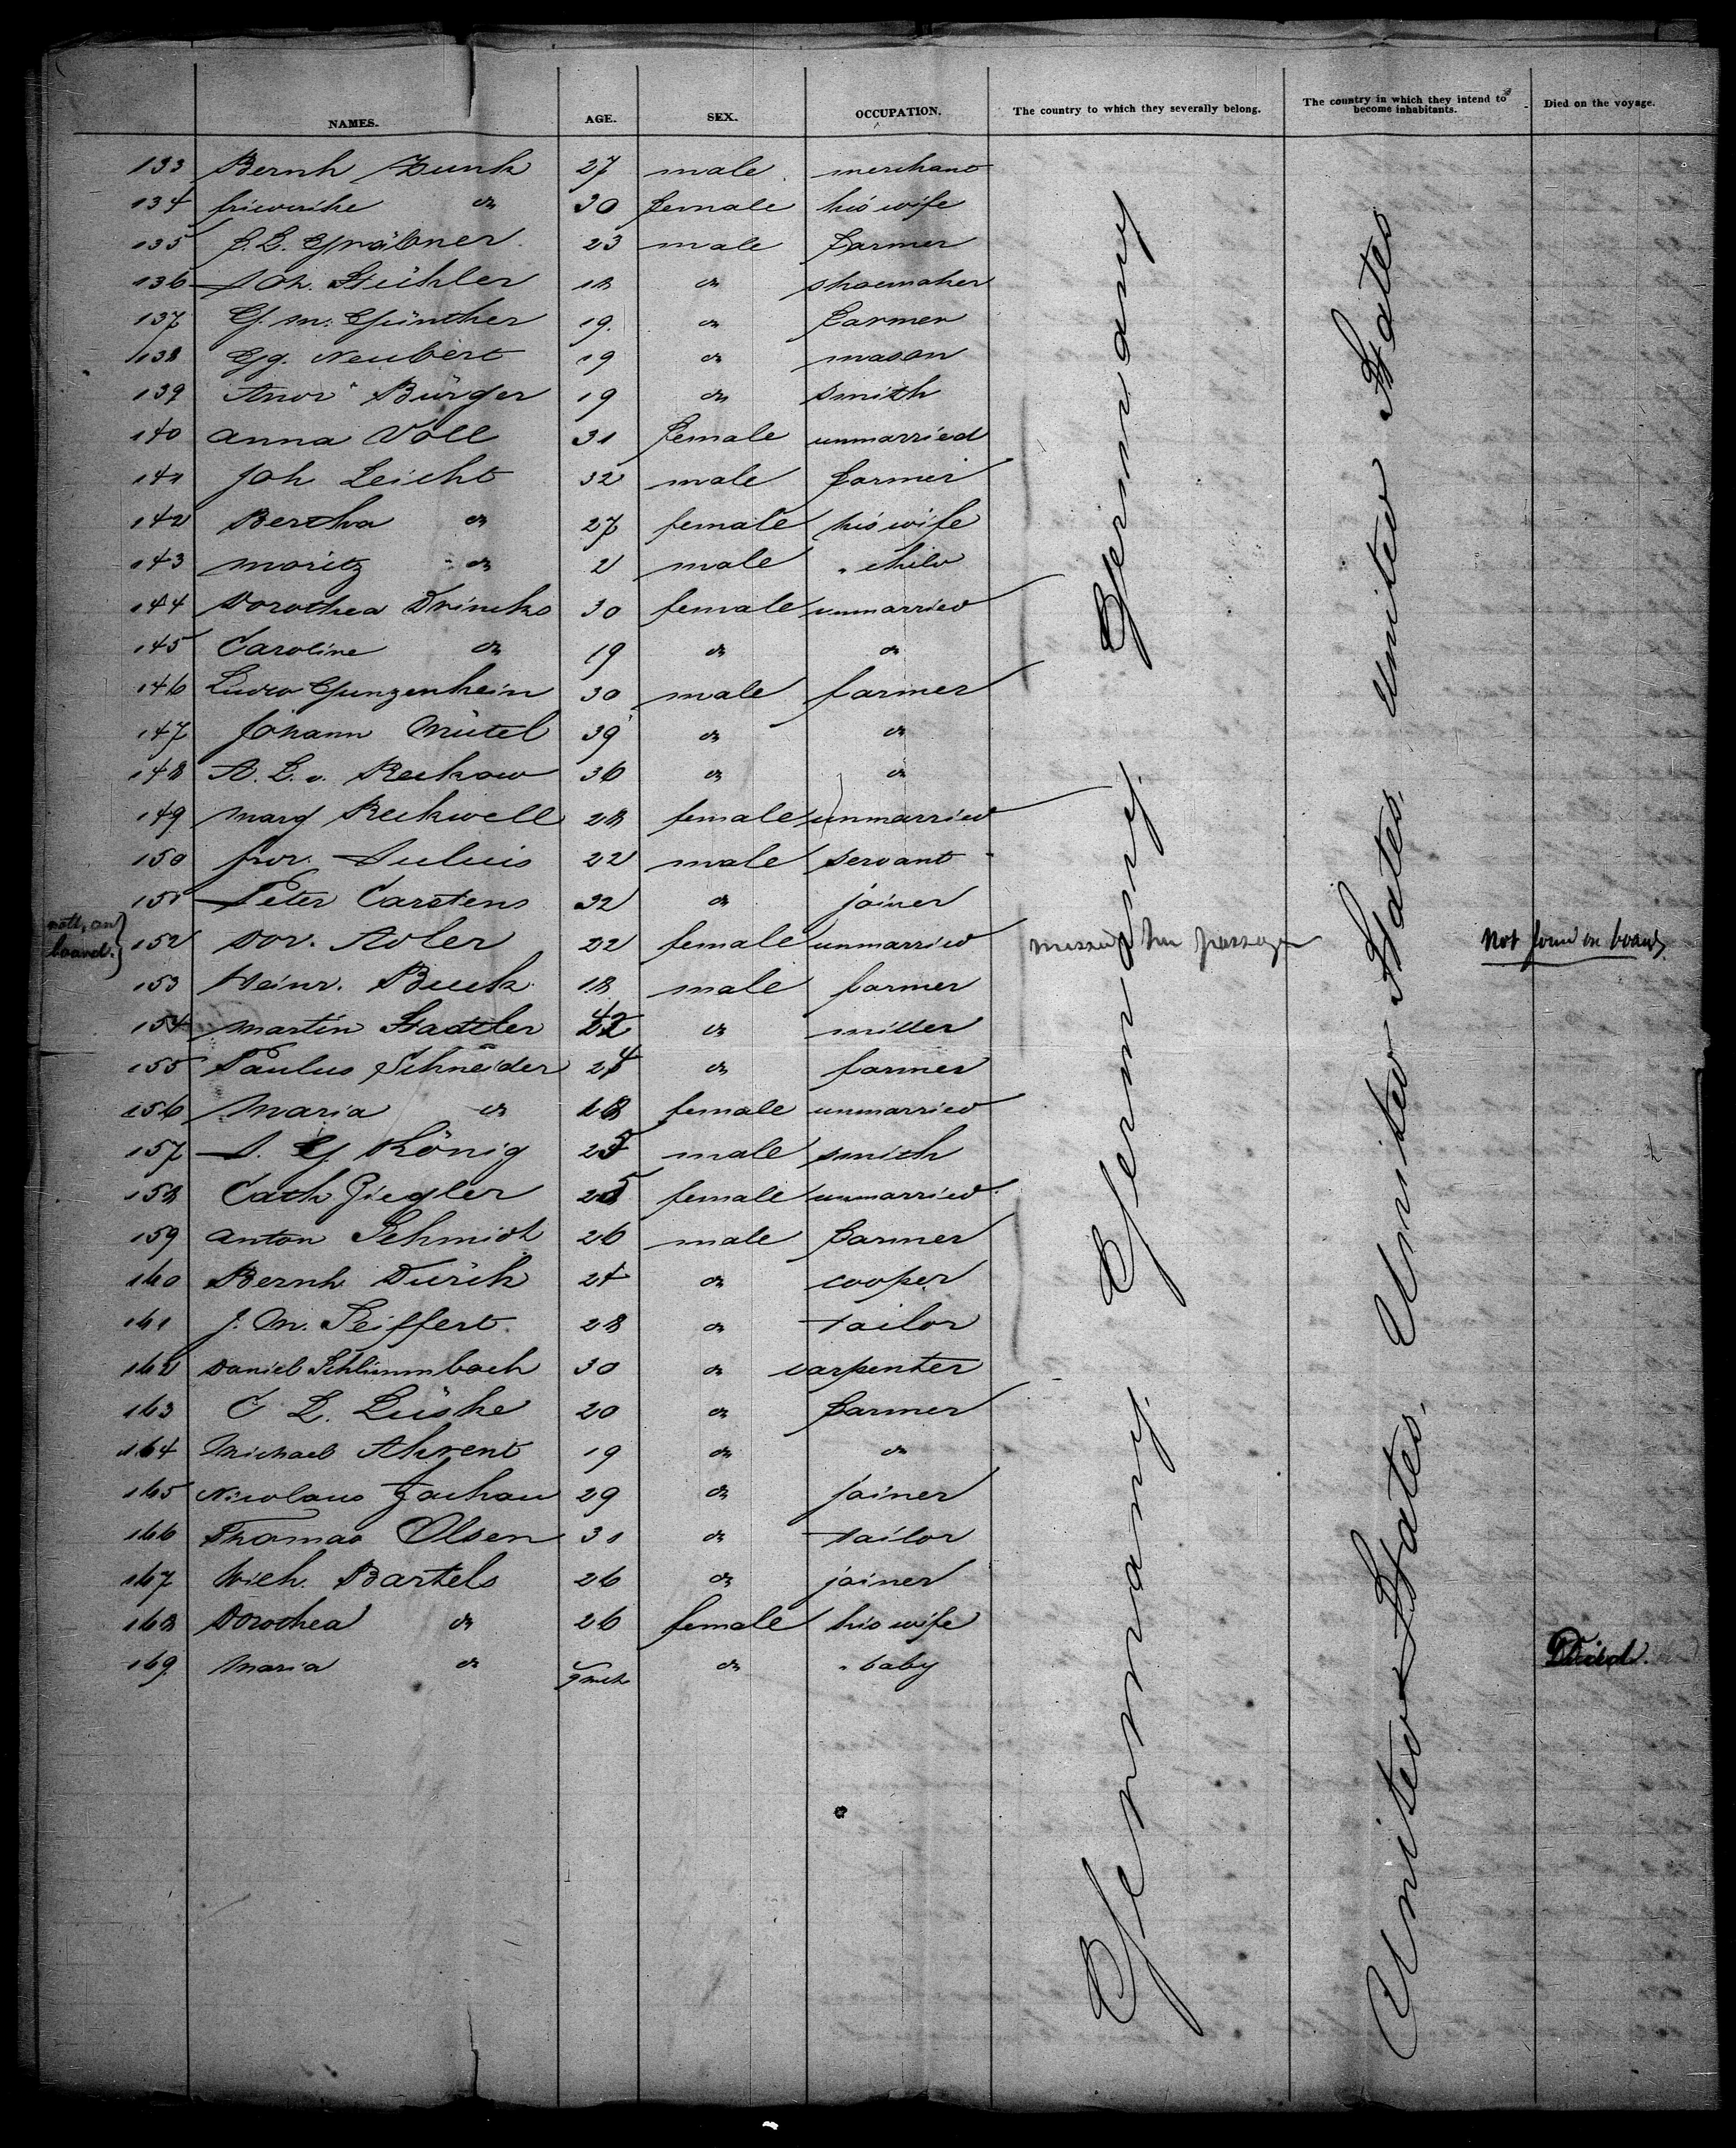 NAMES. AGE. SEX. OCCUPATION. The country to which they severally belong. The country in which they intend to become inhabitants. Died on the voyage.
133 Bernh Zunk 27 male merchant
134 friederike do 30 female his wife
135 E. L. Gräbner 23 male farmer
136 Joh. Stühler 18 do shoemaker
137 G. M. Günther 19 do farmer
138 Gg. Neubert 19 do mason
139 Andr Bürger 19 do smith
140 Anna Voll 31 female unmarried
141 Joh Leicht 32 male farmer
142 Bertha do 27 female his wife
143 Moritz do 2 male " child
144 Dorothea Drincks 30 female unmarried
145 Caroline do 19 do do
146 Ludw Gunzenhein 30 male farmer
147 Johann Mütel 39 do do
148 A. L. v. Reckow 36 do do
149 Marg Reckwell 28 female unmarried
150 frdr. 22 male servant
151 Peter Carstens 32 do joiner
not on board. 152 Dor. Adler 22 female unmarried missed her passage Not found on board
153 Heinr. Buck 18 male farmer
154 Martin Stadtler 42 do miller
155 Paulus Schneider 24 do farmer
156 Maria do 18 female unmarried
157 J. G König 25 male smith
158 Cath Ziegler 25 female unmarried
159 Anton Schmidt 26 male farmer
160 Bernh Dürch 24 do cooper
161 J. M. Seiffert 28 do tailor
162 Daniel Schlimmbach 30 do carpenter
163 C L. Lüske 20 do farmer
164 Michael Ahrent 19 do do
165 Nicolaus Jachau 29 do joiner
166 Thomas Olsen 31 do tailor
167 Wilh. Bartels 26 do joiner
168 Dorothea do 26 female his wife
169 Maria do 9 mth do " baby Died.
Germany
Germany.
Germany.
United States
United States.
United States.